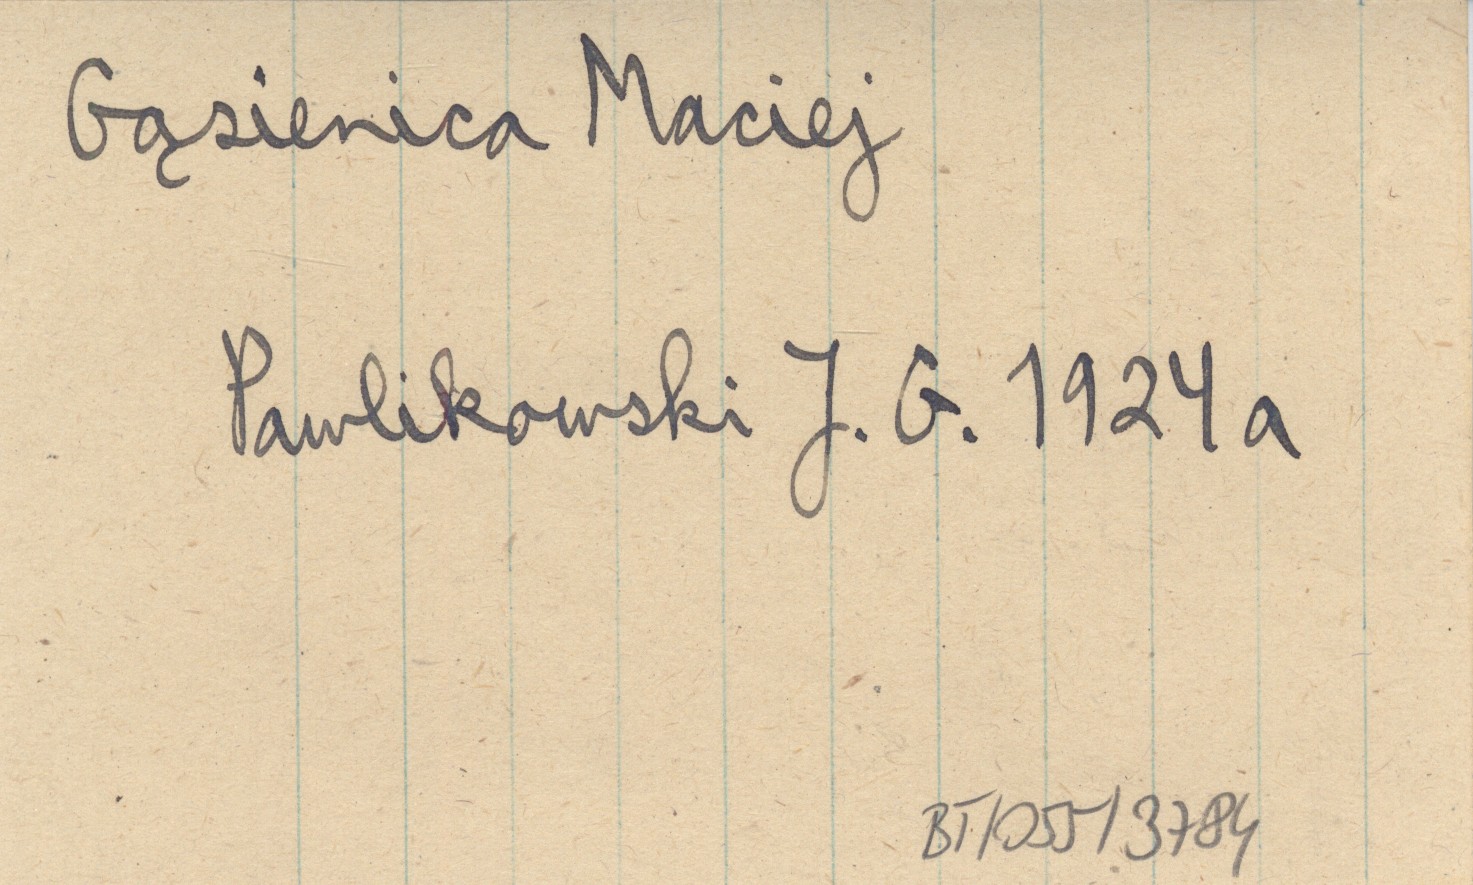 Gąsienica Maciej
Pawlikowski J. G. 1924a
BT/055/3784